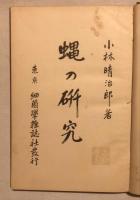 小林晴治郎著
蝿の研究
東京 細菌學雜誌社發行